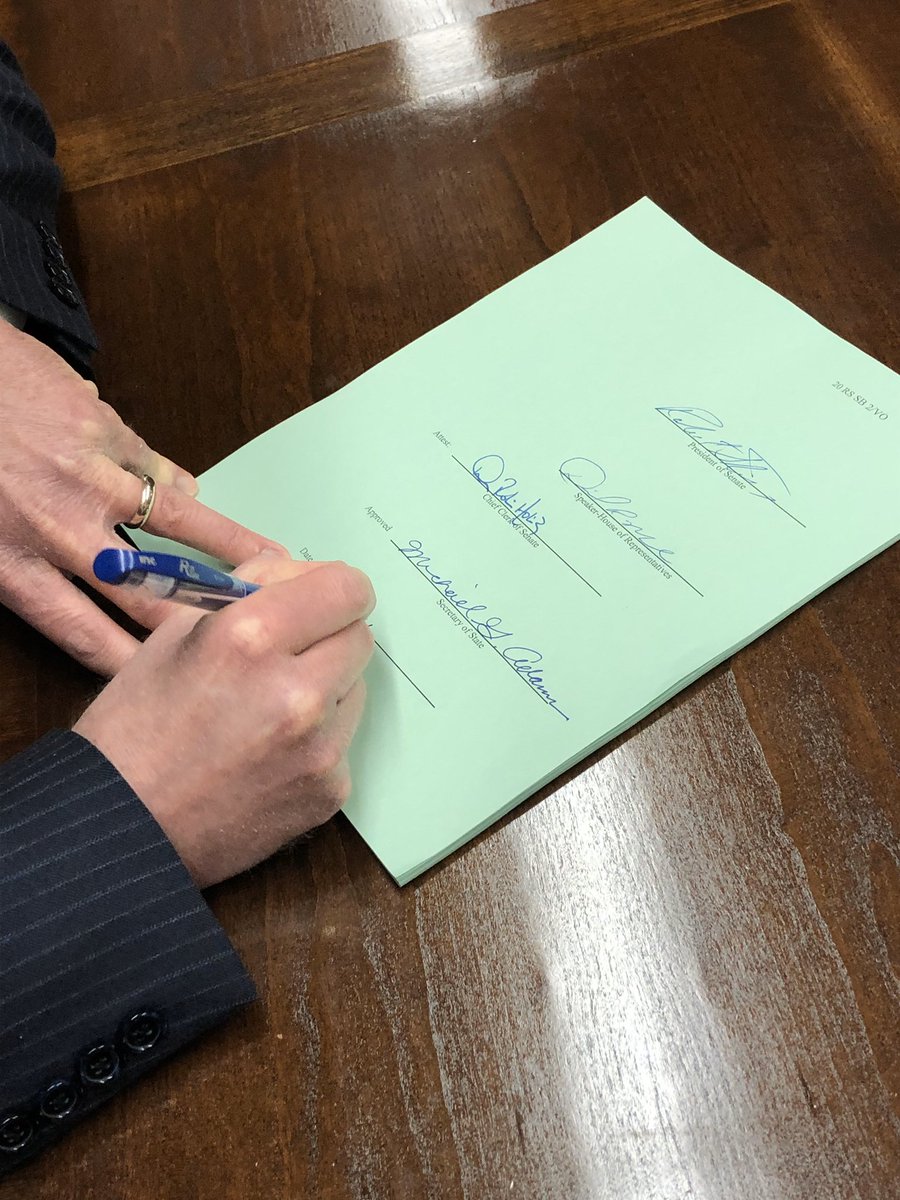 20 RS SB 2/VO
President of Senate
Speaker-House of Representatives
Attest:
Chief Clerk of Senate
Approved
Michael G. Adams
Secretary of State
Date